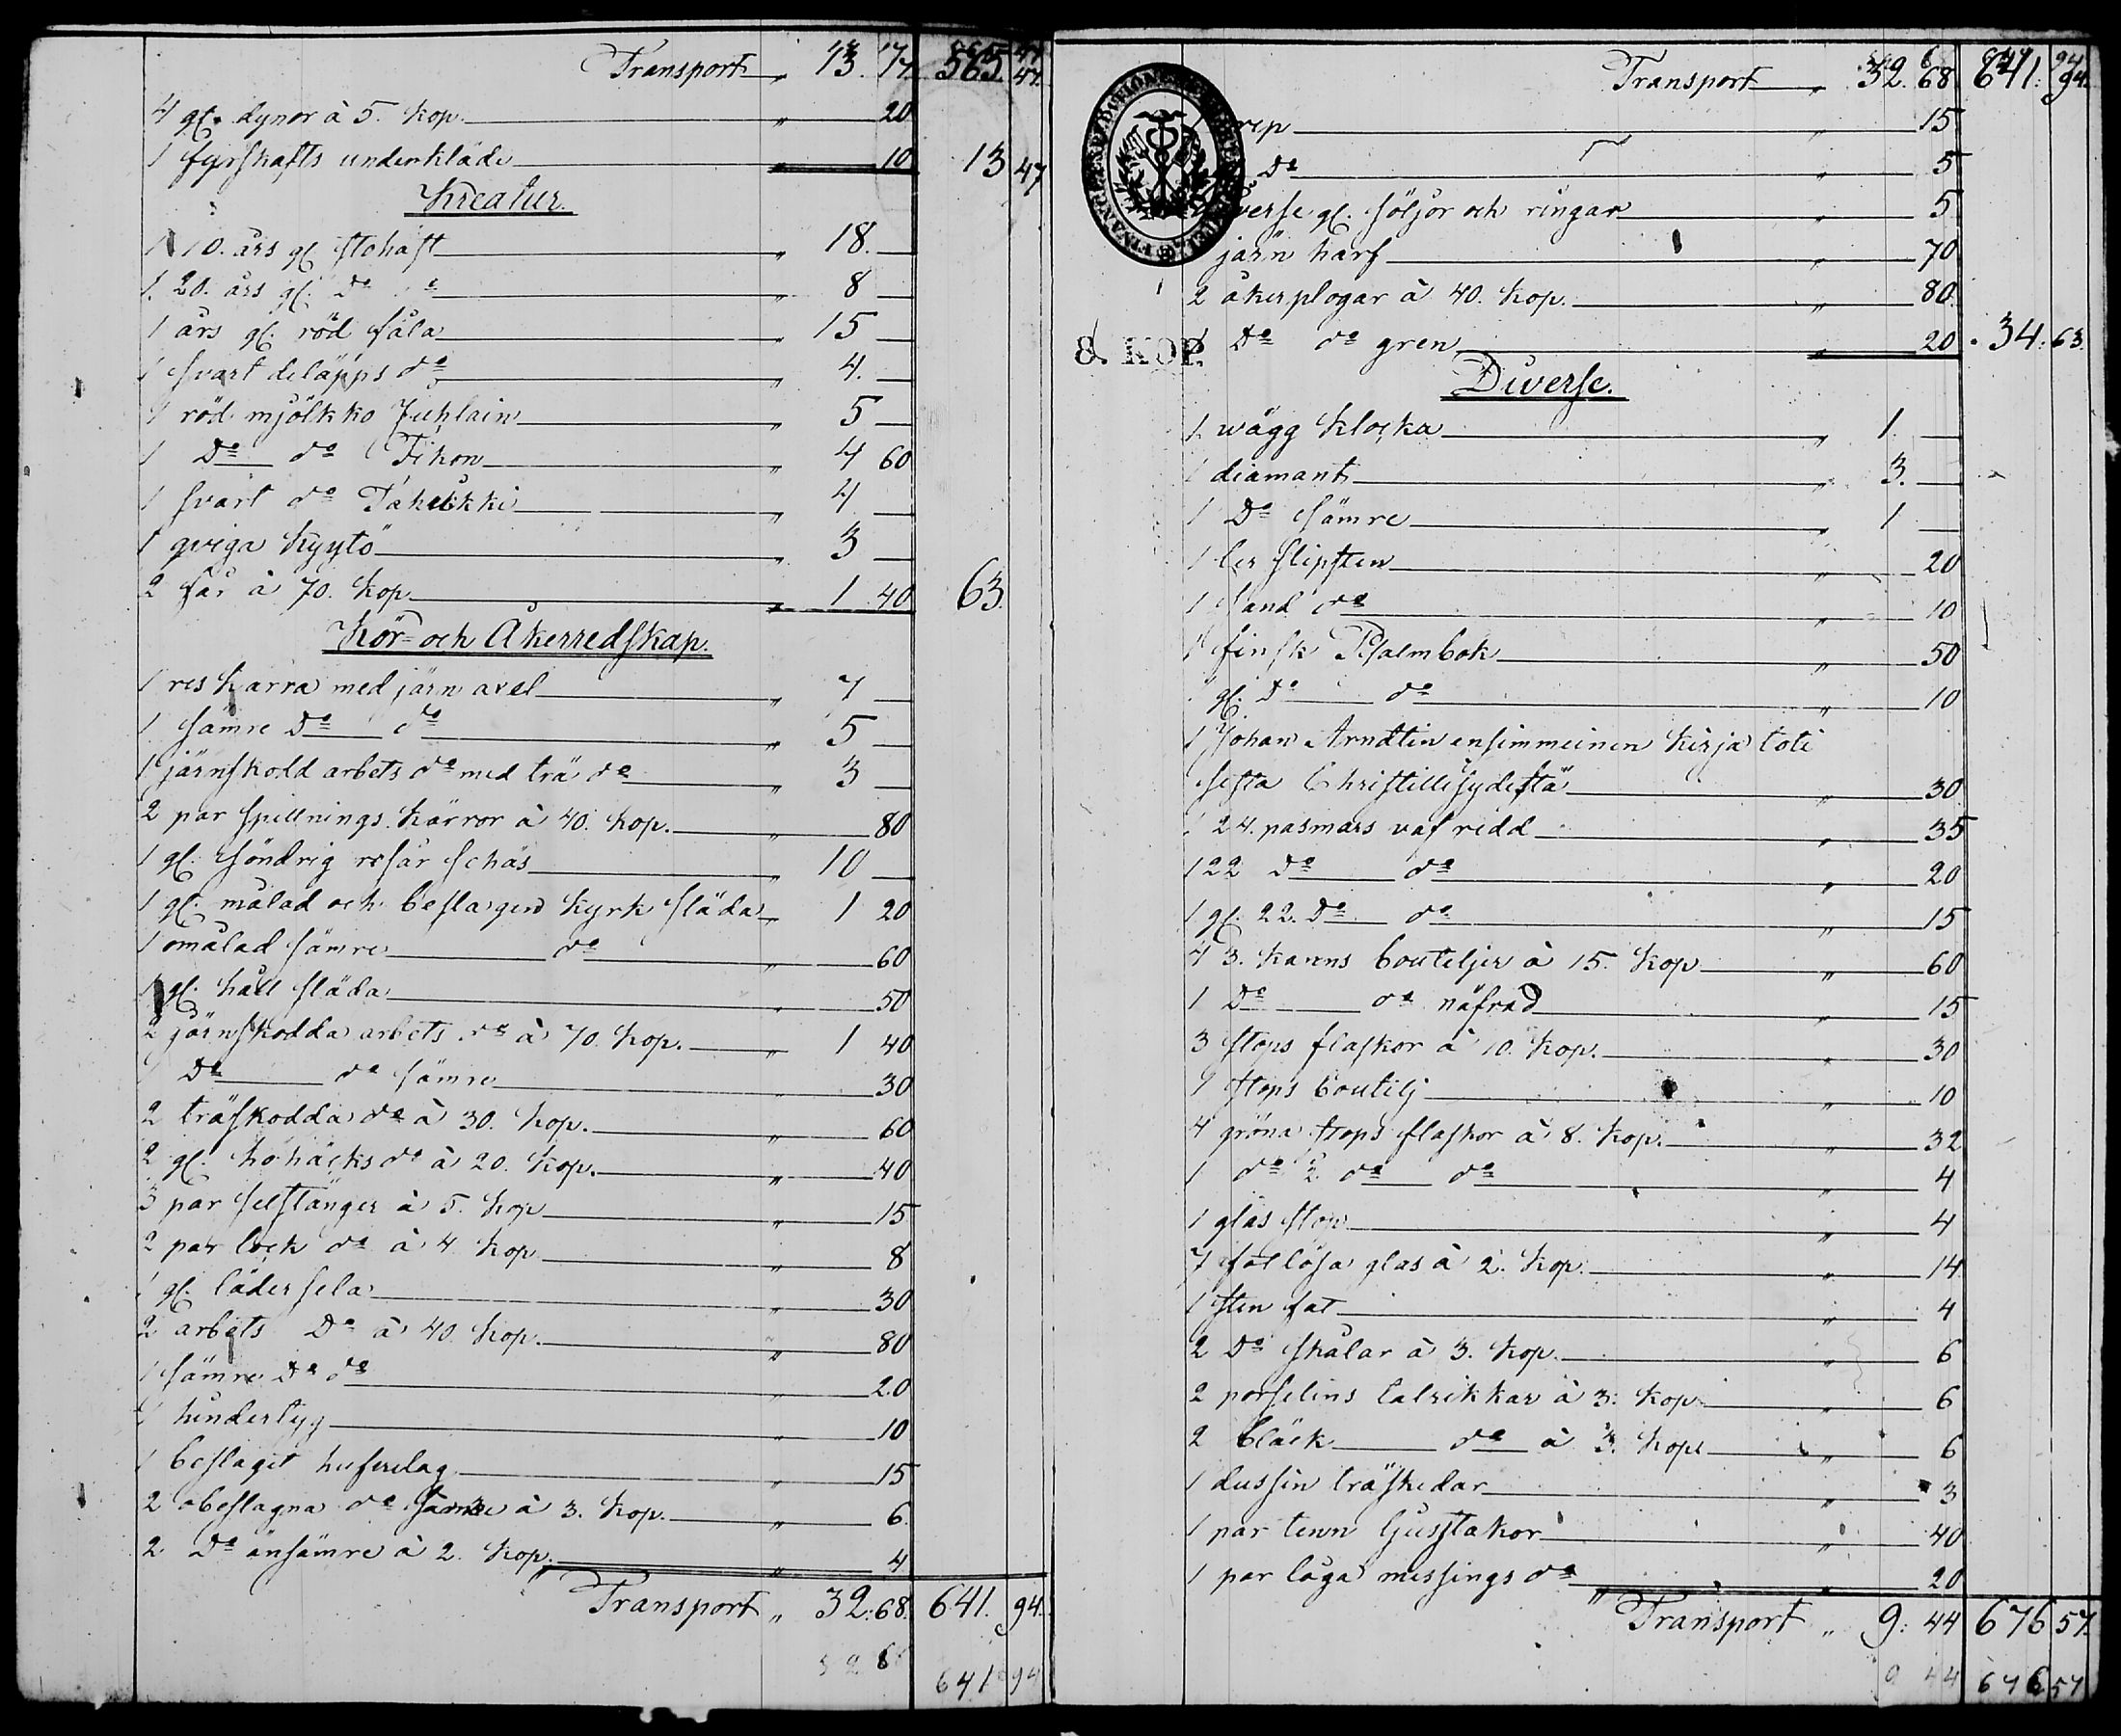 Transport „ 13. 17. 565. 47.
4 gl. dynor à 5. Kop. „ 20
1 fyrskafts underkläde „ 10 13 47
Kreatur.
1 10. års gl. stohäst „ 18. —
1. 20. års gl. do do „ 8 —
1 års gl. röd fåla „ 15 —
1 svart deläpps do „ 4. —
1 röd mjölkko Juhlain „ 5 —
1 Do do Tikon „ 4 60
1 svart do „ 4 —
1 qviga Kyytö „ 3 —
2 får à 70. Kop „ 1 40 63.
Kör- och Åkerredskap.
1 res Karra med järn axel „ 7 —
1 sämre Do do „ 5 —
1 järnskodd arbets do med trä do „ 3 —
2 par spillnings Kärror à 40. Kop. „ 80
1 gl. söndrig resår schäs „ 10 —
1 gl. målad och beslagen Kyrk släda „ 1 20
1 omålad sämre do „ 60
1 gl. håll släda „ 50
2 järnskodda arbets do à 70. Kop. „ 1 40
1 Do do sämre „ 30
2 träskodda do à 30. Kop. „ 60
2 gl. höhäcks do à 20. Kop. „ 40
3 par selstänger à 5. Kop „ 15
2 par lock do à 4 Kop „ 8
1 gl. läder sela „ 30
2 arbets Do à 40. Kop. „ 80
1 sämre Do do „ 20
1 hindertyg „ 10
1 beslagit „ 15
2 obeslagna do sämre à 3. Kop. „ 6.
2 Do änsämre à 2. Kop. „ 4
Transport „ 32:68. 641. 94.
32 68 641 94
Transport „ 32. 68 641. 94.
rep „ 15
Do „ 5
verse gl. söljor och ringar „ 5
järn harf „ 70
2 åkerplogar à 40. Kop. „ 80.
8. KOP. Do do gren „ 20 34. 63.
Diverse.
1. wägg klocka „ 1. —
1 diamant „ 3. —
1 Do sämre „ 1 —
1 ler slipsten „ 20
1 sand do „ 10
1 finsk Psalmbok „ 50
1 gl. Do do „ 10
1 Johan Arndtin ensimmeinen Kirja toti
sesta Christillisydestä „ 30
1 24. pasmars vaf redd „ 35
1 22 Do do „ 20
1 gl. 22. Do do „ 15
4 3. Kanns bouteljer à 15. Kop „ 60
1 Do do näfrad „ 15
3 stops flaskor à 10. Kop. „ 30
1 stops boutelj „ 10
4 gröna stops flaskor à 8. Kop. „ 32
1 do 2 do do „ 4
1 glas stop „ 4
7 fotlösa glas à 2. Kop. „ 14
1 sten fat „ 4
2 Do skålar à 3. Kop. „ 6
2 porselins talrikkar à 3. Kop. „ 6
2 bläck do à 3. Kop. „ 6
1 dussin träskedar „ 3
1 par tenn ljusstakor „ 40
1 par låga messings do „ 20
Transport „ 9: 44 676 57.
9 44 676 57